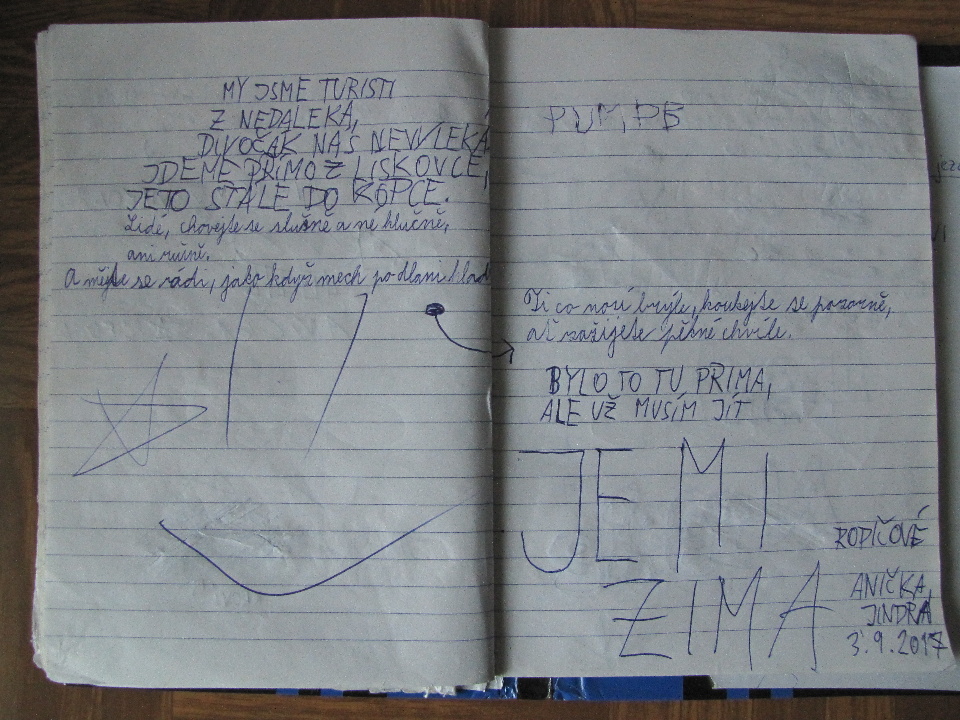 MY JSME TURISTI
Z NEDALEKA,
DIVOČAK NAS NEVVLEKÁ.
JDEME PŘIMO Z LISKOVCE,
JETO STALE DO KOPCE.
Lidé, chovejte se slušně a né hlučně,
ani rušně.
A mějte se rádi, jako když mech po dlani hladí
PUM, PB
Ti co nosí brýle, koukejte se pozorně,
ať zažijete pěkné chvíle.
BYLO TO TU PRIMA,
ALE UŽ MUSÍM JÍT
JE MI
ZIMA
RODIČOVÉ
ANIČKA,
JINDRA
3.9.2017